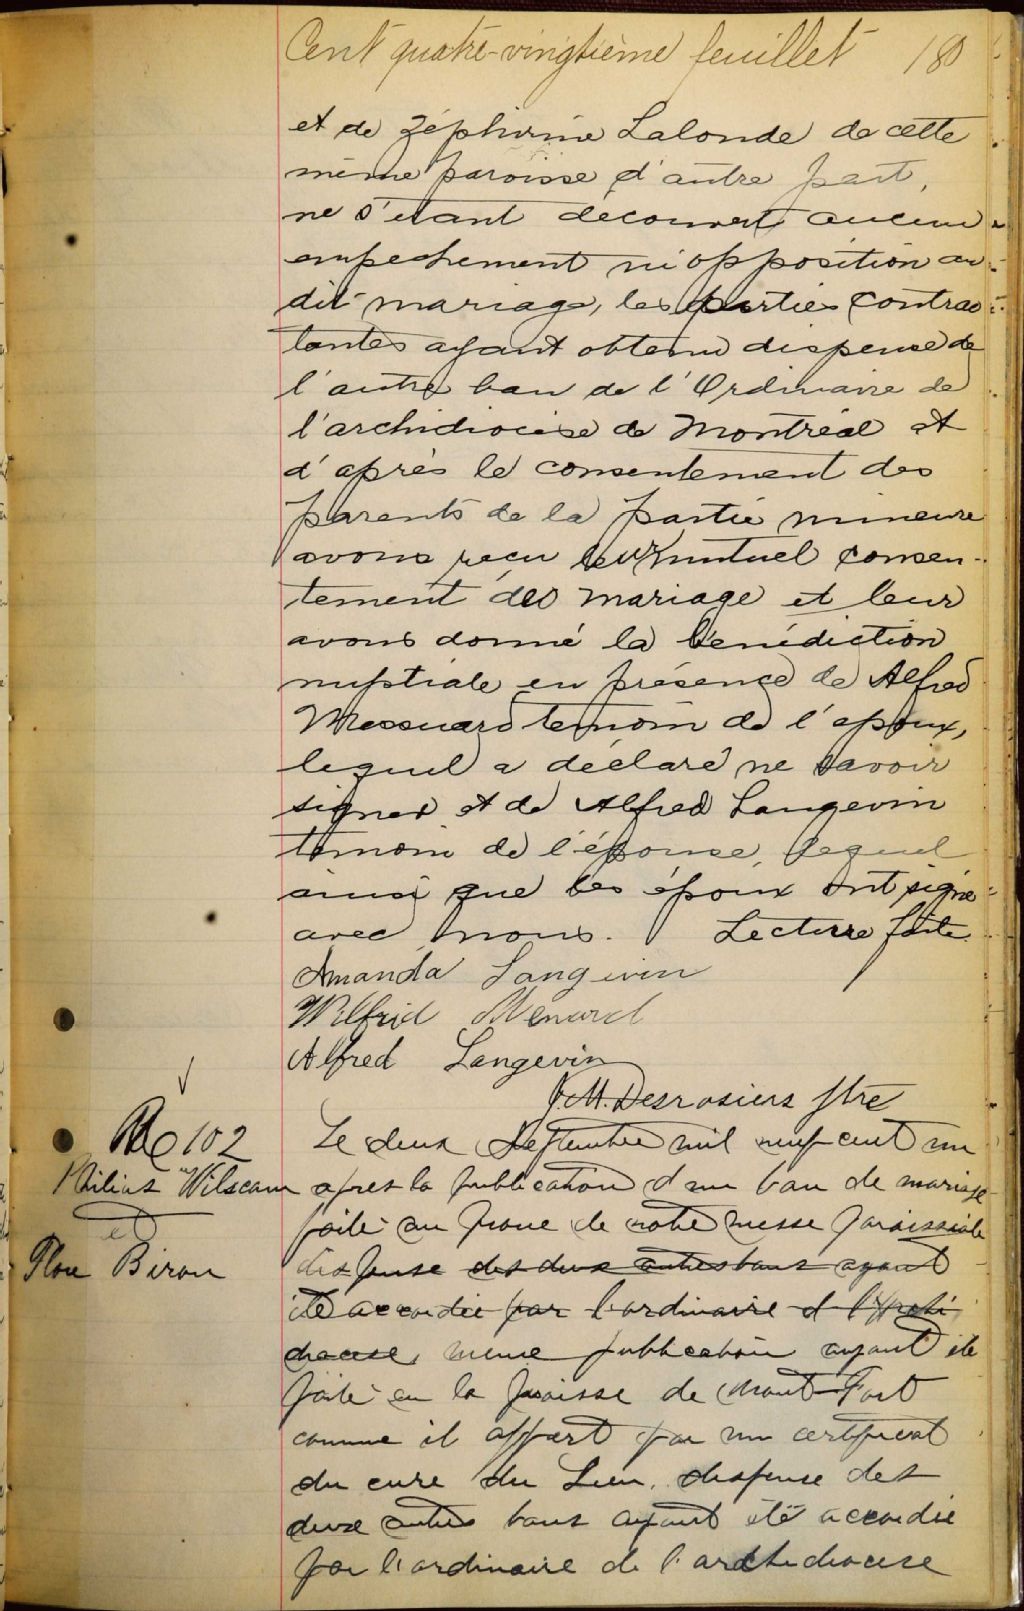 Cent quatre-vingtième feuillet 180
et de Zéphirine Lalonde de cette
même paroisse d'autre part,
ne s'étant découvert aucun
empechement ni opposition au
dit mariage, les parties contrac
tantes ayant obtenu dispense de
l'autre ban de l'Ordinaire de
l'archidiocèse de Montréal et
d'après le consentement des
parents de la partie mineure
avons reçu leur mutuel consen-
tement de mariage et leur
avons donné la bénédiction
nuptiale en présence de Alfred
temoin de l'epoux,
lequel a déclaré ne savoir
signer et de Alfred Langevin
temoin de l'épouse, lequel
ainsi que les époux ont signé
avec nous. Lecture faite.
Amanda Langevin
Wilfrid Menard
Alfred Langevin
J.M. Desrosiers ptre
102
Philias Wilscam
et
Biron
Le deux Septembre mil neuf cent un
apres la publication d'un ban de mariage
faite au prone de notre messe paroissiale
dispense des deux autres bans ayant
été accordée par l'ordinaire d l'archi
diocese, meme publication ayant ete
faite en la paroisse de Mont-Fort
comme il appert par un certificat
du cure du Lieu, dispense des
deux autres bans ayant été accordée
par l'ordinaire de l'archidiocese